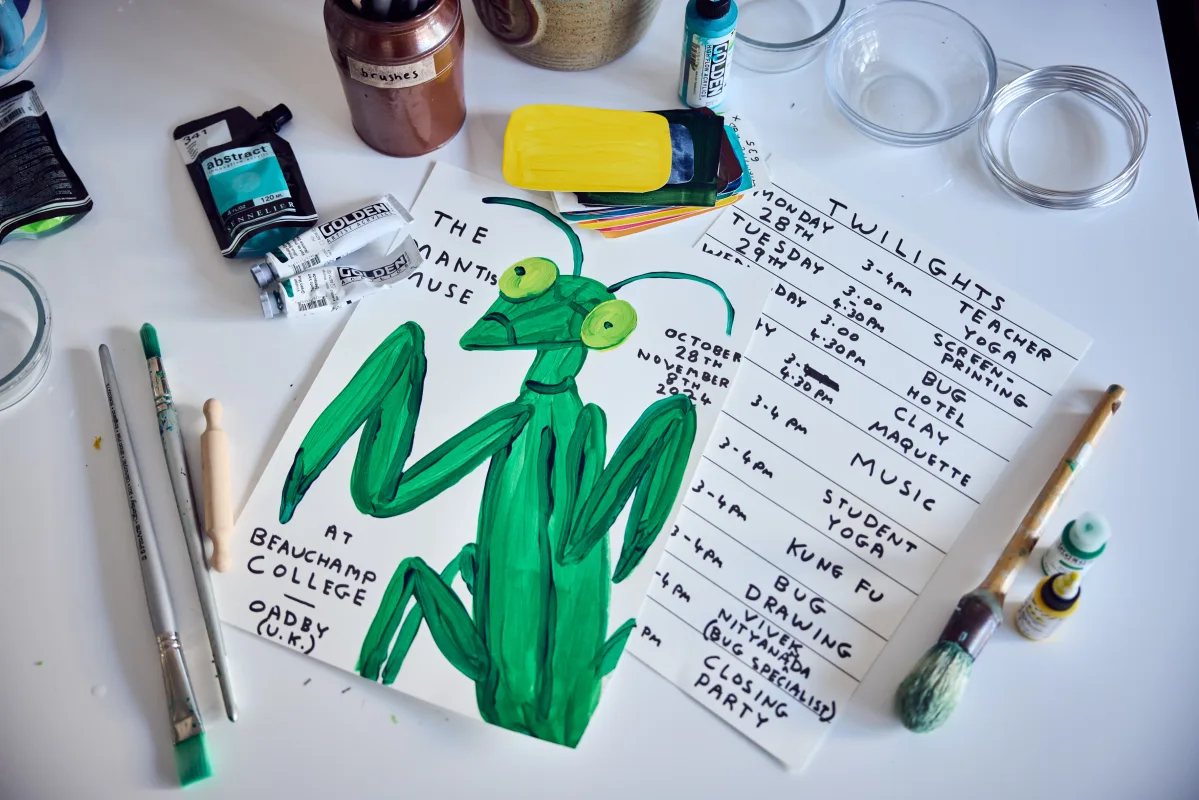 brushes
341
abstract
120 ML
GOLDEN
GOLDEN
GOLDEN
THE
MANTIS
MUSE
OCTOBER
28TH
NOVEMBER
8TH
2024
AT
BEAUCHAMP
COLLEGE
—
OADBY
(U.K.)
TWILIGHTS
MONDAY
28TH
3-4PM
TEACHER
YOGA
TUESDAY
29TH
3.00
4.30PM
SCREEN-
PRINTING
3.00
4.30PM
BUG
HOTEL
3.
4.30PM
CLAY
MAQUETTE
3-4PM
MUSIC
3-4PM
STUDENT
YOGA
3-4PM
KUNG FU
3-4PM
BUG
DRAWING
4PM
VIVEK
NITYANADA
(BUG SPECIALIST)
PM
CLOSING
PARTY